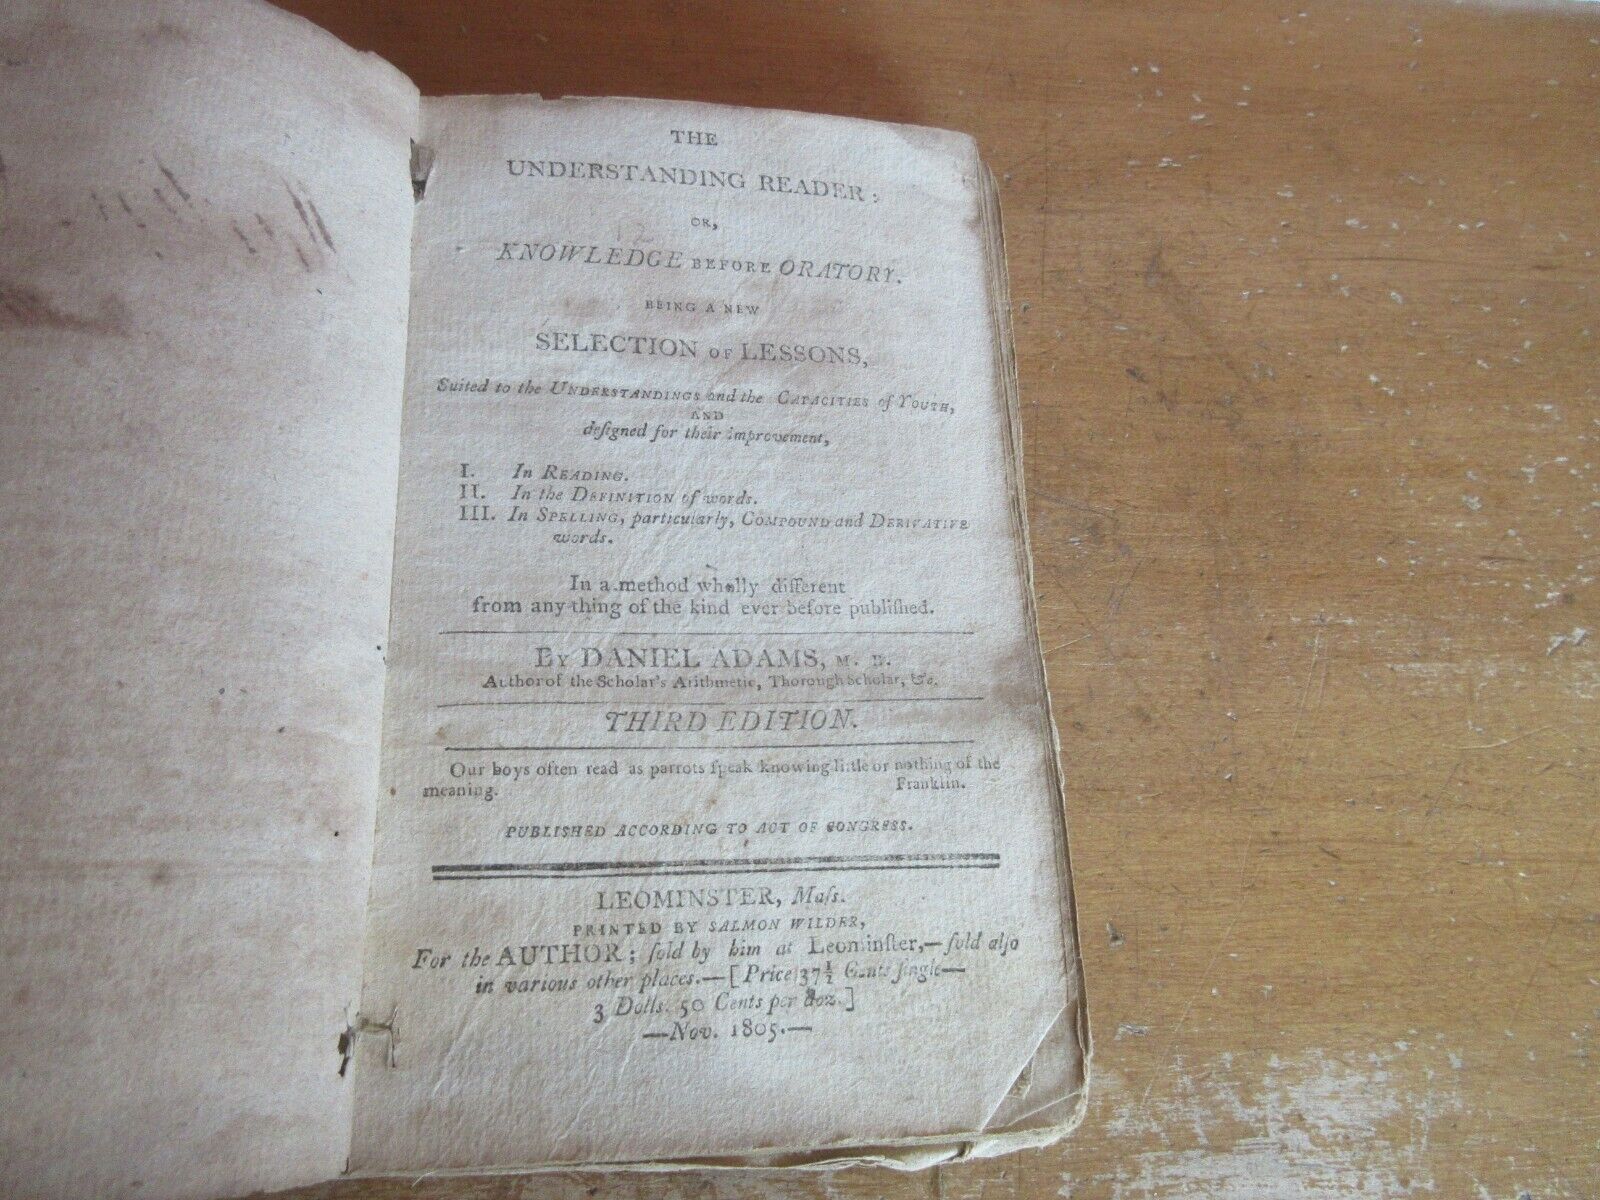 THE
UNDERSTANDING READER:
OR,
KNOWLEDGE BEFORE ORATORY.
BEING A NEW
SELECTION OF LESSONS,
Suited to the UNDERSTANDINGS and the CAPACITIES of YOUTH,
AND
deſigned for their improvement,
I. In READING.
II. In the DEFINITION of words.
III. In SPELLING, particularly, COMPOUND and DERIVATIVE
words.
In a method wholly different
from any thing of the kind ever before publiſhed.
BY DANIEL ADAMS, M. B.
Author of the Scholar's Arithmetic, Thorough Scholar, &c.
THIRD EDITION.
Our boys often read as parrots ſpeak knowing little or nothing of the
meaning. Franklin.
PUBLISHED ACCORDING TO ACT OF CONGRESS.
LEOMINSTER, Maſs.
PRINTED BY SALMON WILDER,
For the AUTHOR; ſold by him at Leominſter,—ſold alſo
in various other places.—[Price 37½ Cents ſingle—
3 Dolls. 50 Cents per doz.]
—Nov. 1805.—